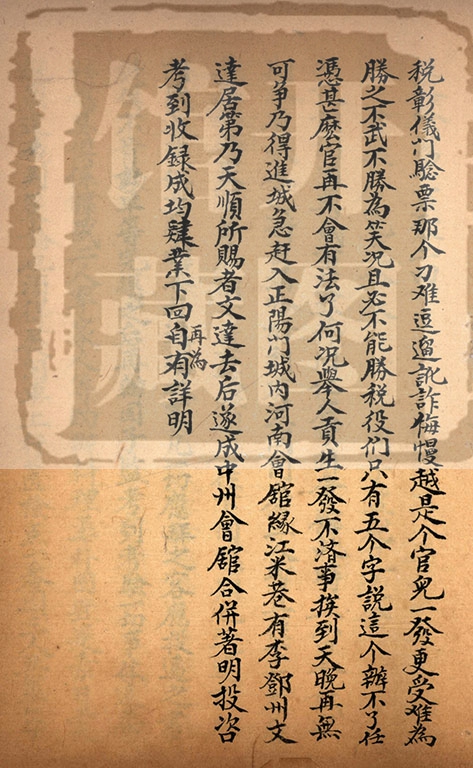 税彰儀门騐票那个刁难逗遛訛詐悔慢越是个官児一發更受难為
勝之不武不勝為笑况且必不能勝税役们只有五个字說這个辦不了任
憑甚麼官再不會有法了何况舉人貢生一發不済事挨到天晚再無
可争乃得進城急赶入正陽门城内河南會舘緣江米巷有李鄧州文
達居第乃天順所賜者文達去后遂成中州會舘合併著明投咨
考到收録成均肄業下回自再為有詳明